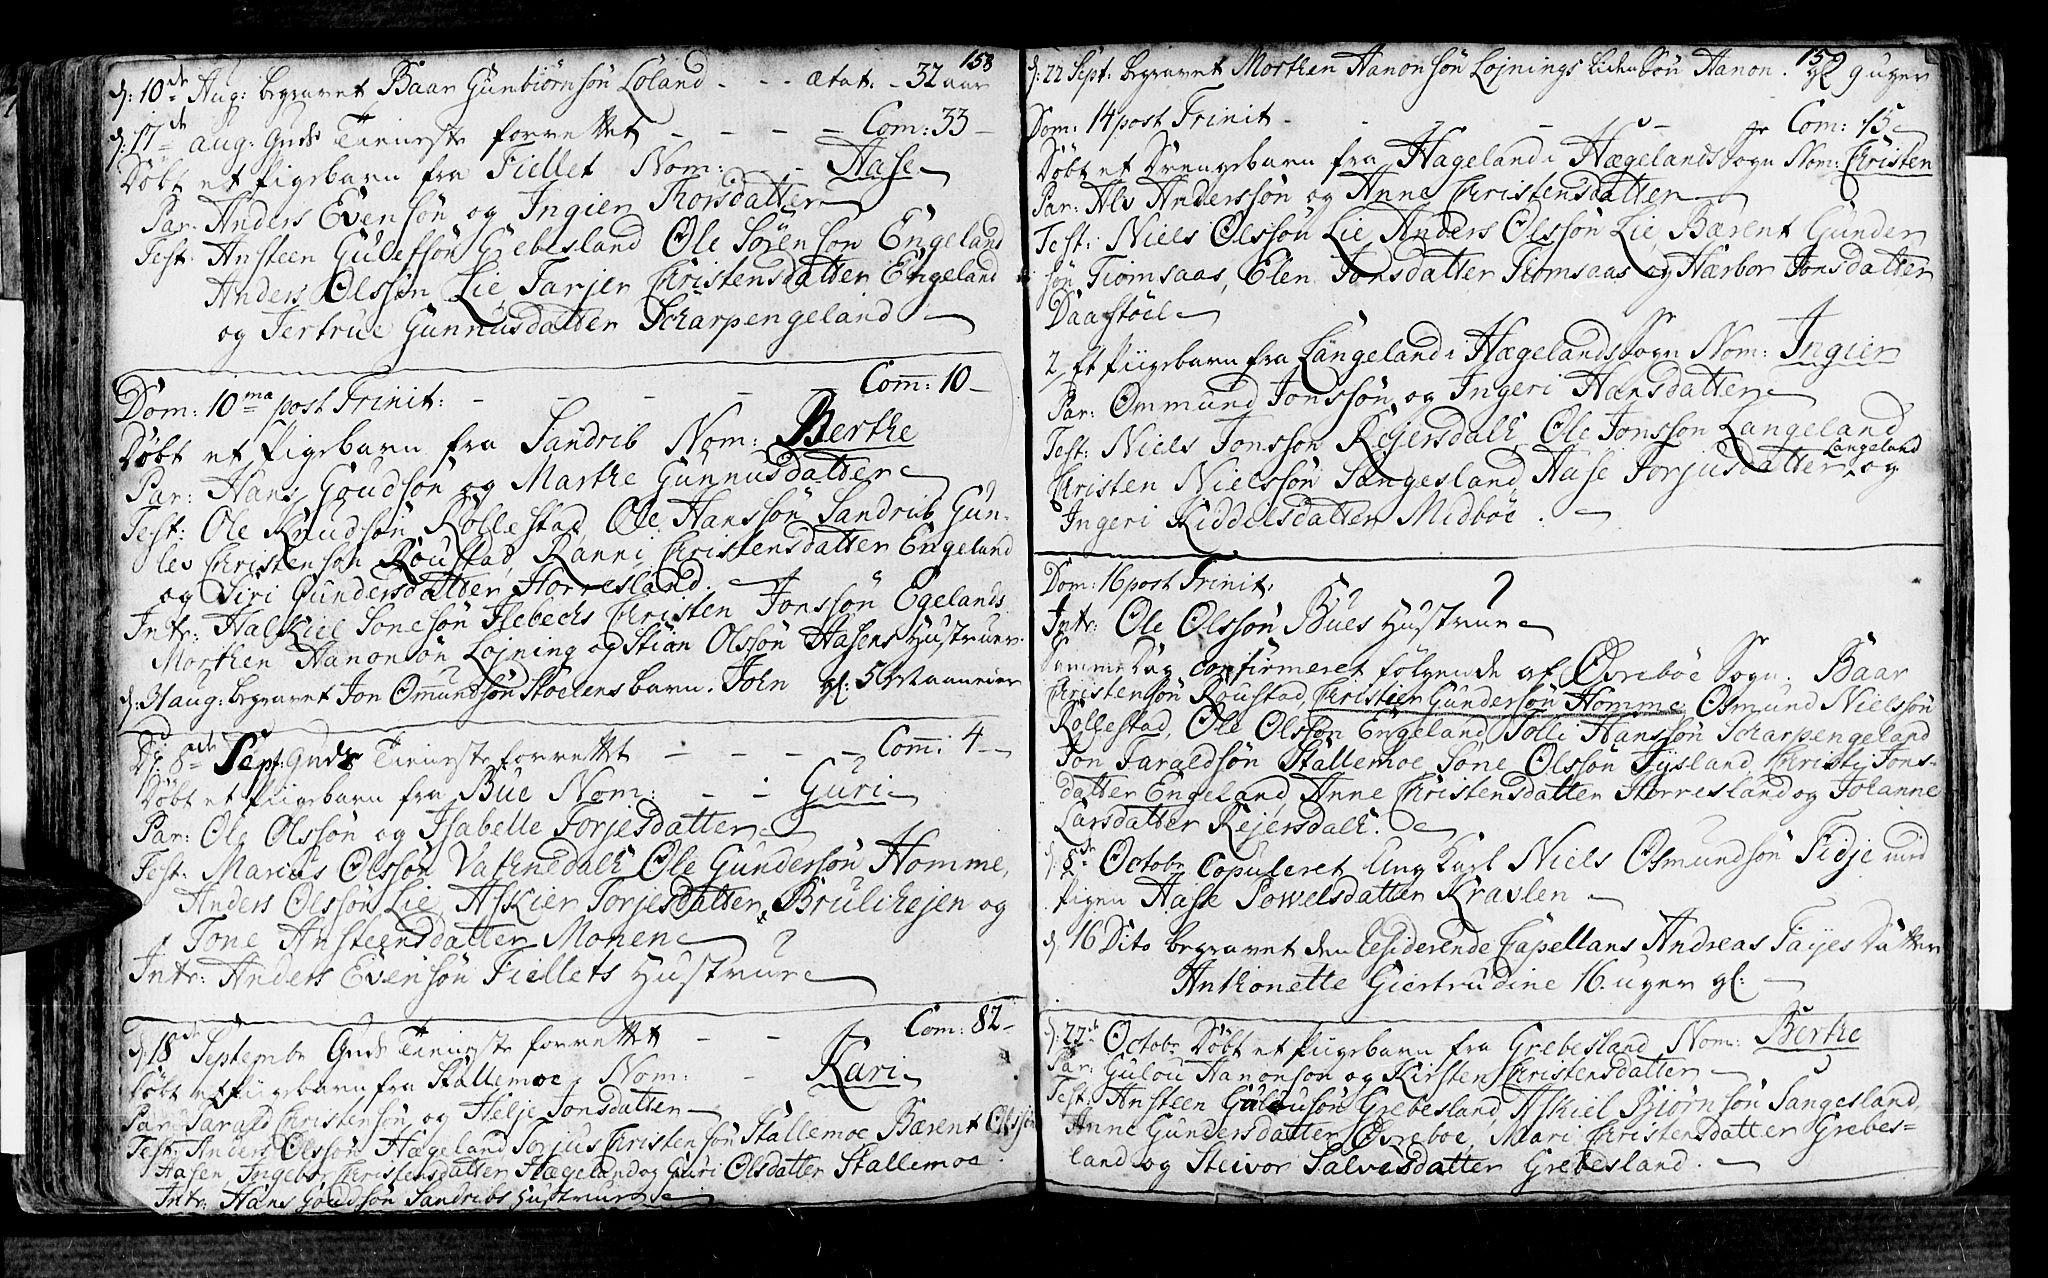 158
d: 10de Aug: begravet Baar Gunbiörnsön Löland - - ætat. - 32 aar
d: 17de aug: Guds Tieniste forrettet - - - - Com: 33 -
Döbt et Pigebarn fra Fiellet Nom: - - Aase
Par: Anders Evensön og Ingier Thorsdatter
Test: Ansteen Gulefsön Grebesland Ole Sörensön Engeland
Anders Olssön Lie, Tarjer Christensdatter Engeland
og Jertrue Gunnusdatter Scharpengeland
Dom: 10ma post Trinit: - - - - - Com: 10 -
Döbt et Pigebarn fra Sandrib Nom: Berthe
Par: Hans Goudsön og Marthe Gunnusdatter
Test: Ole Knudsön Röllestad Ole Hanssön Sandrib Gun-
lev Christensön Roustad, Ranni Christensdatter Engeland
og Siri Gundersdatter Horresland.
Intr: Halkiel Sonesön Flebechs Christen Jonssön Egelands
Morthen Hanonsön Lojning og Stian Olssön Aasens Hustruer.
d: 31 aug: begravet Jon Omundsön Stoelens barn. John gl: 5 Maaneder
D: 8de Sept: Guds Tieniste forrettet - - - - Com: 4 -
Döbt et Piigebarn fra Bue Nom: - - Guri
Par: Ole Olssön og Isabelle Torjesdatter
Test: Marius Olssön Vathnedalh Ole Gundersön Homme,
Anders Olssön Lie, Askier Torjesdatter Brulihejen og
Tone Ansteensdatter Monen
Intr: Anders Evensön Fiellets Hustrue
d: 18de Septembr Guds Tieniste forrettet - - Com: 82 -
Döbt et Piigebarn fra Stallemoe, Nom: - Kari
Par: Tarald Christensön og Helje Jonsdatter
Test: Anders Olssön Hægeland Torjus Christensön Stallemoe Bærent Olssön
Aasen, Ingebor Christensdatter Hægeland og Guri Olsdatter Stallemoe
Intr: Hans Goudsön Sandribs Hustrue
159
d: 22 Sept: begravet Morthen Hanonsön Lojnings Sön Hanon. gl 9 uger
Dom: 14 post Trinit - - - - - - Com: 15
Döbt et Drengebarn fra Hageland i Hægelands Sogn Nom: Christen
Par: Alv Anderssön og Anne Christensdatter
Test: Niels Olssön Lie Anders Olssön Lie, Bærent Gunder
sön Tiomsaas, Elen Jonsdatter Tiomsaas og Hærbor Jonsdatter
Daastöel
2, Et Piigebarn fra Langeland i Hægelands Sogn Nom: Ingier
Par: Ommund Jonssön og Ingeri Hansdatter
Test: Niels Jonsson Rejersdalh, Ole Jonsson Langeland
Christen Nielssön Sangesland, Aase Torjusdatter Langeland og
Ingeri Kiddelsdatter Midböe.
Dom: 16 post Trinit:
Intr: Ole Olssön Bues Hustrue
Samme Dag confirmeret fölgende af Övreböe Sogn. Baar
Christensön Roustad, Christen Gundersön Homme Osmund Nielssön
Röllestad, Ole Olssön Engeland Tolli Hanssön Scharpengeland
Jon Taraldsön Stallemoe Sone Olssön Tjisland, Christi Jons-
datter Engeland, Anne Christensdatter Horresland og Johanne
Larsdatter Rejersdalh.
d: 5de Octobr copuleret Ung Karl Niels Osmundsön Fidje med
Pigen Aase Powelsdatter Kravlen
d: 16 Dito begravet den residerende Capellans Andreas Faijes Datter
Anthonette Giertrudine 16. uger gl:
d: 22de Octobr Döbt et Piigebarn fra Grebesland Nom: Berthe
Par: Gulou Hanonsön og Kirsten Christensdatter
Test: Ansteen Gulousön Grebesland, Askiel Biörnsön Sangesland,
Anne Gundersdatter Övreboe, Mari Christensdatter Grebes-
land og Steivor Salvesdatter Grebesland.